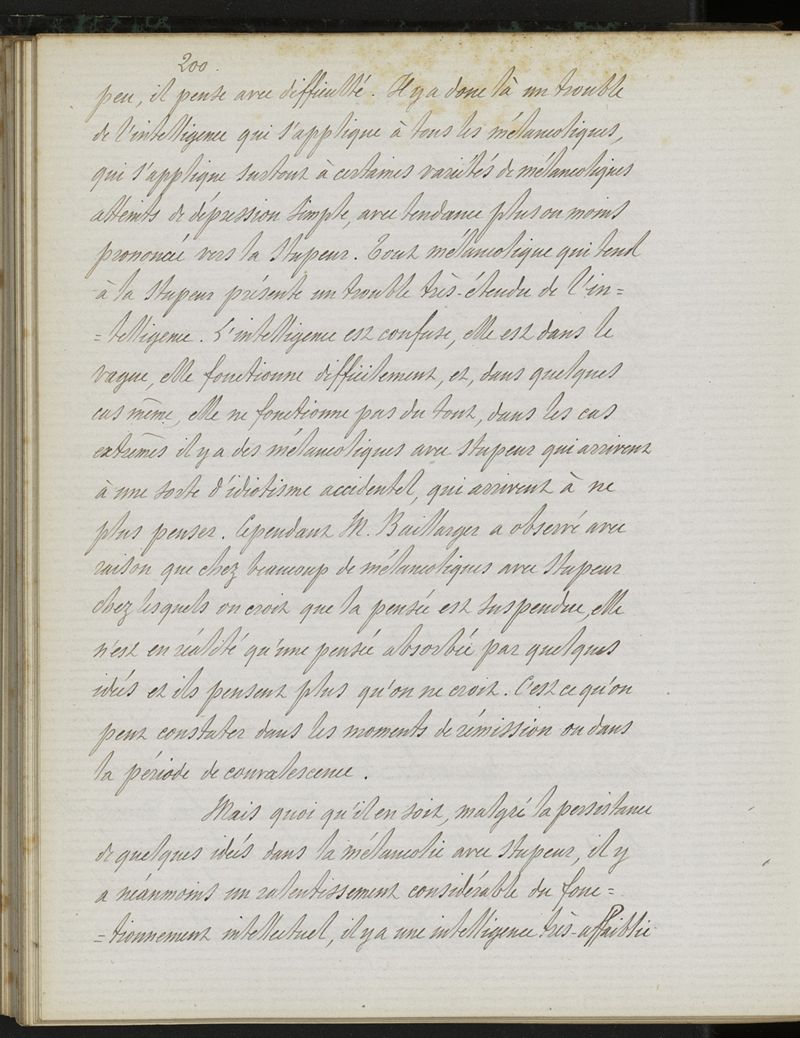 200.
peu, il pense avec difficulté. Il y a donc là un trouble
de l'intelligence qui s'applique à tous les mélancoliques,
qui s'applique surtout à certaines variétés de mélancoliques
atteints de dépression simple, avec tendance plus ou moins
prononcée vers la stupeur. Tout mélancolique qui tend
à la stupeur présente un trouble très-étendu de l'in=
=telligence. L'intelligence est confuse, elle est dans le
vague, elle fonctionne difficilement, et, dans quelques
cas même, elle ne fonctionne pas du tout, dans les cas
extrêmes il y a des mélancoliques avec stupeur qui arrivent
à une sorte d'idiotisme accidentel, qui arrivent à ne
plus penser. Cependant M. Baillarger a observé avec
raison que chez beaucoup de mélancoliques avec stupeur
chez lesquels on croit que la pensée est suspendue, elle
n'est en réalité qu'une pensée absorbée par quelques
idées et ils pensent plus qu'on ne croit. C'est ce qu'on
peut constater dans les moments de rémission ou dans
la période de convalescence.
Mais quoi qu'il en soit, malgré la persistance
de quelques idées dans la mélancolie avec stupeur, il y
a néanmoins un ralentissement considérable du fonc=
=tionnement intellectuel, il y a une intelligence très-affaiblie